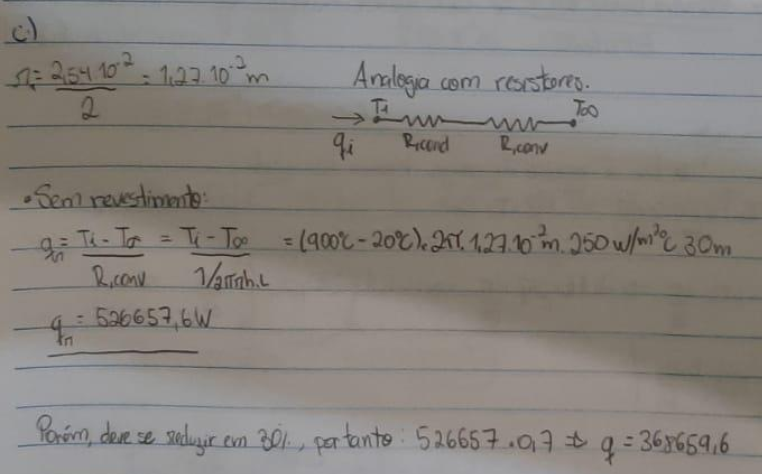 c)
r₁ = 2,54.10⁻² / 2 = 1,27.10⁻²m
Analogia com resistores.
T₁ T∞
qᵢ R,cond R,conv
• Sem revestimento:
qₙ = Tᵢ - T∞ / R,conv = Tᵢ - T∞ / 1/2πrih.L = (900°C - 20°C).2π.1,27.10⁻²m.250 W/m²°C 30m
qₙ = 526657,6W
Porém, deve se reduzir em 30%, portanto: 526657.0,7 ⇒ q = 368659,6